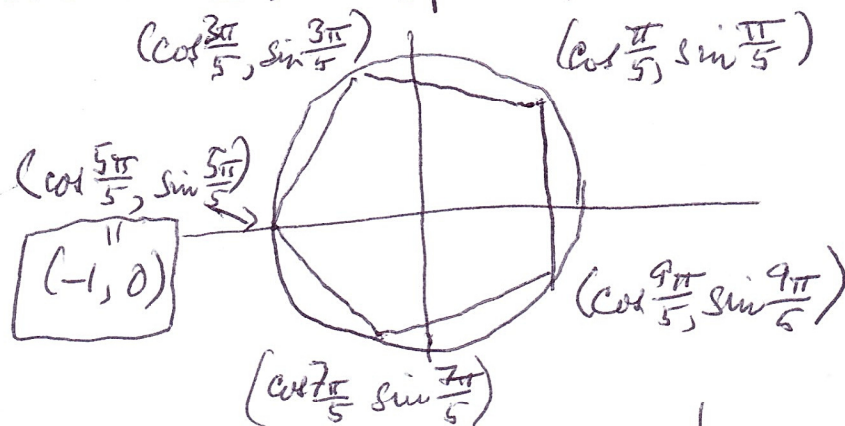 (cos 3π/5, sin 3π/5) (cos π/5, sin π/5)
(cos 5π/5, sin 5π/5)
=
(-1, 0)
(cos 9π/5, sin 9π/5)
(cos 7π/5 sin 7π/5)